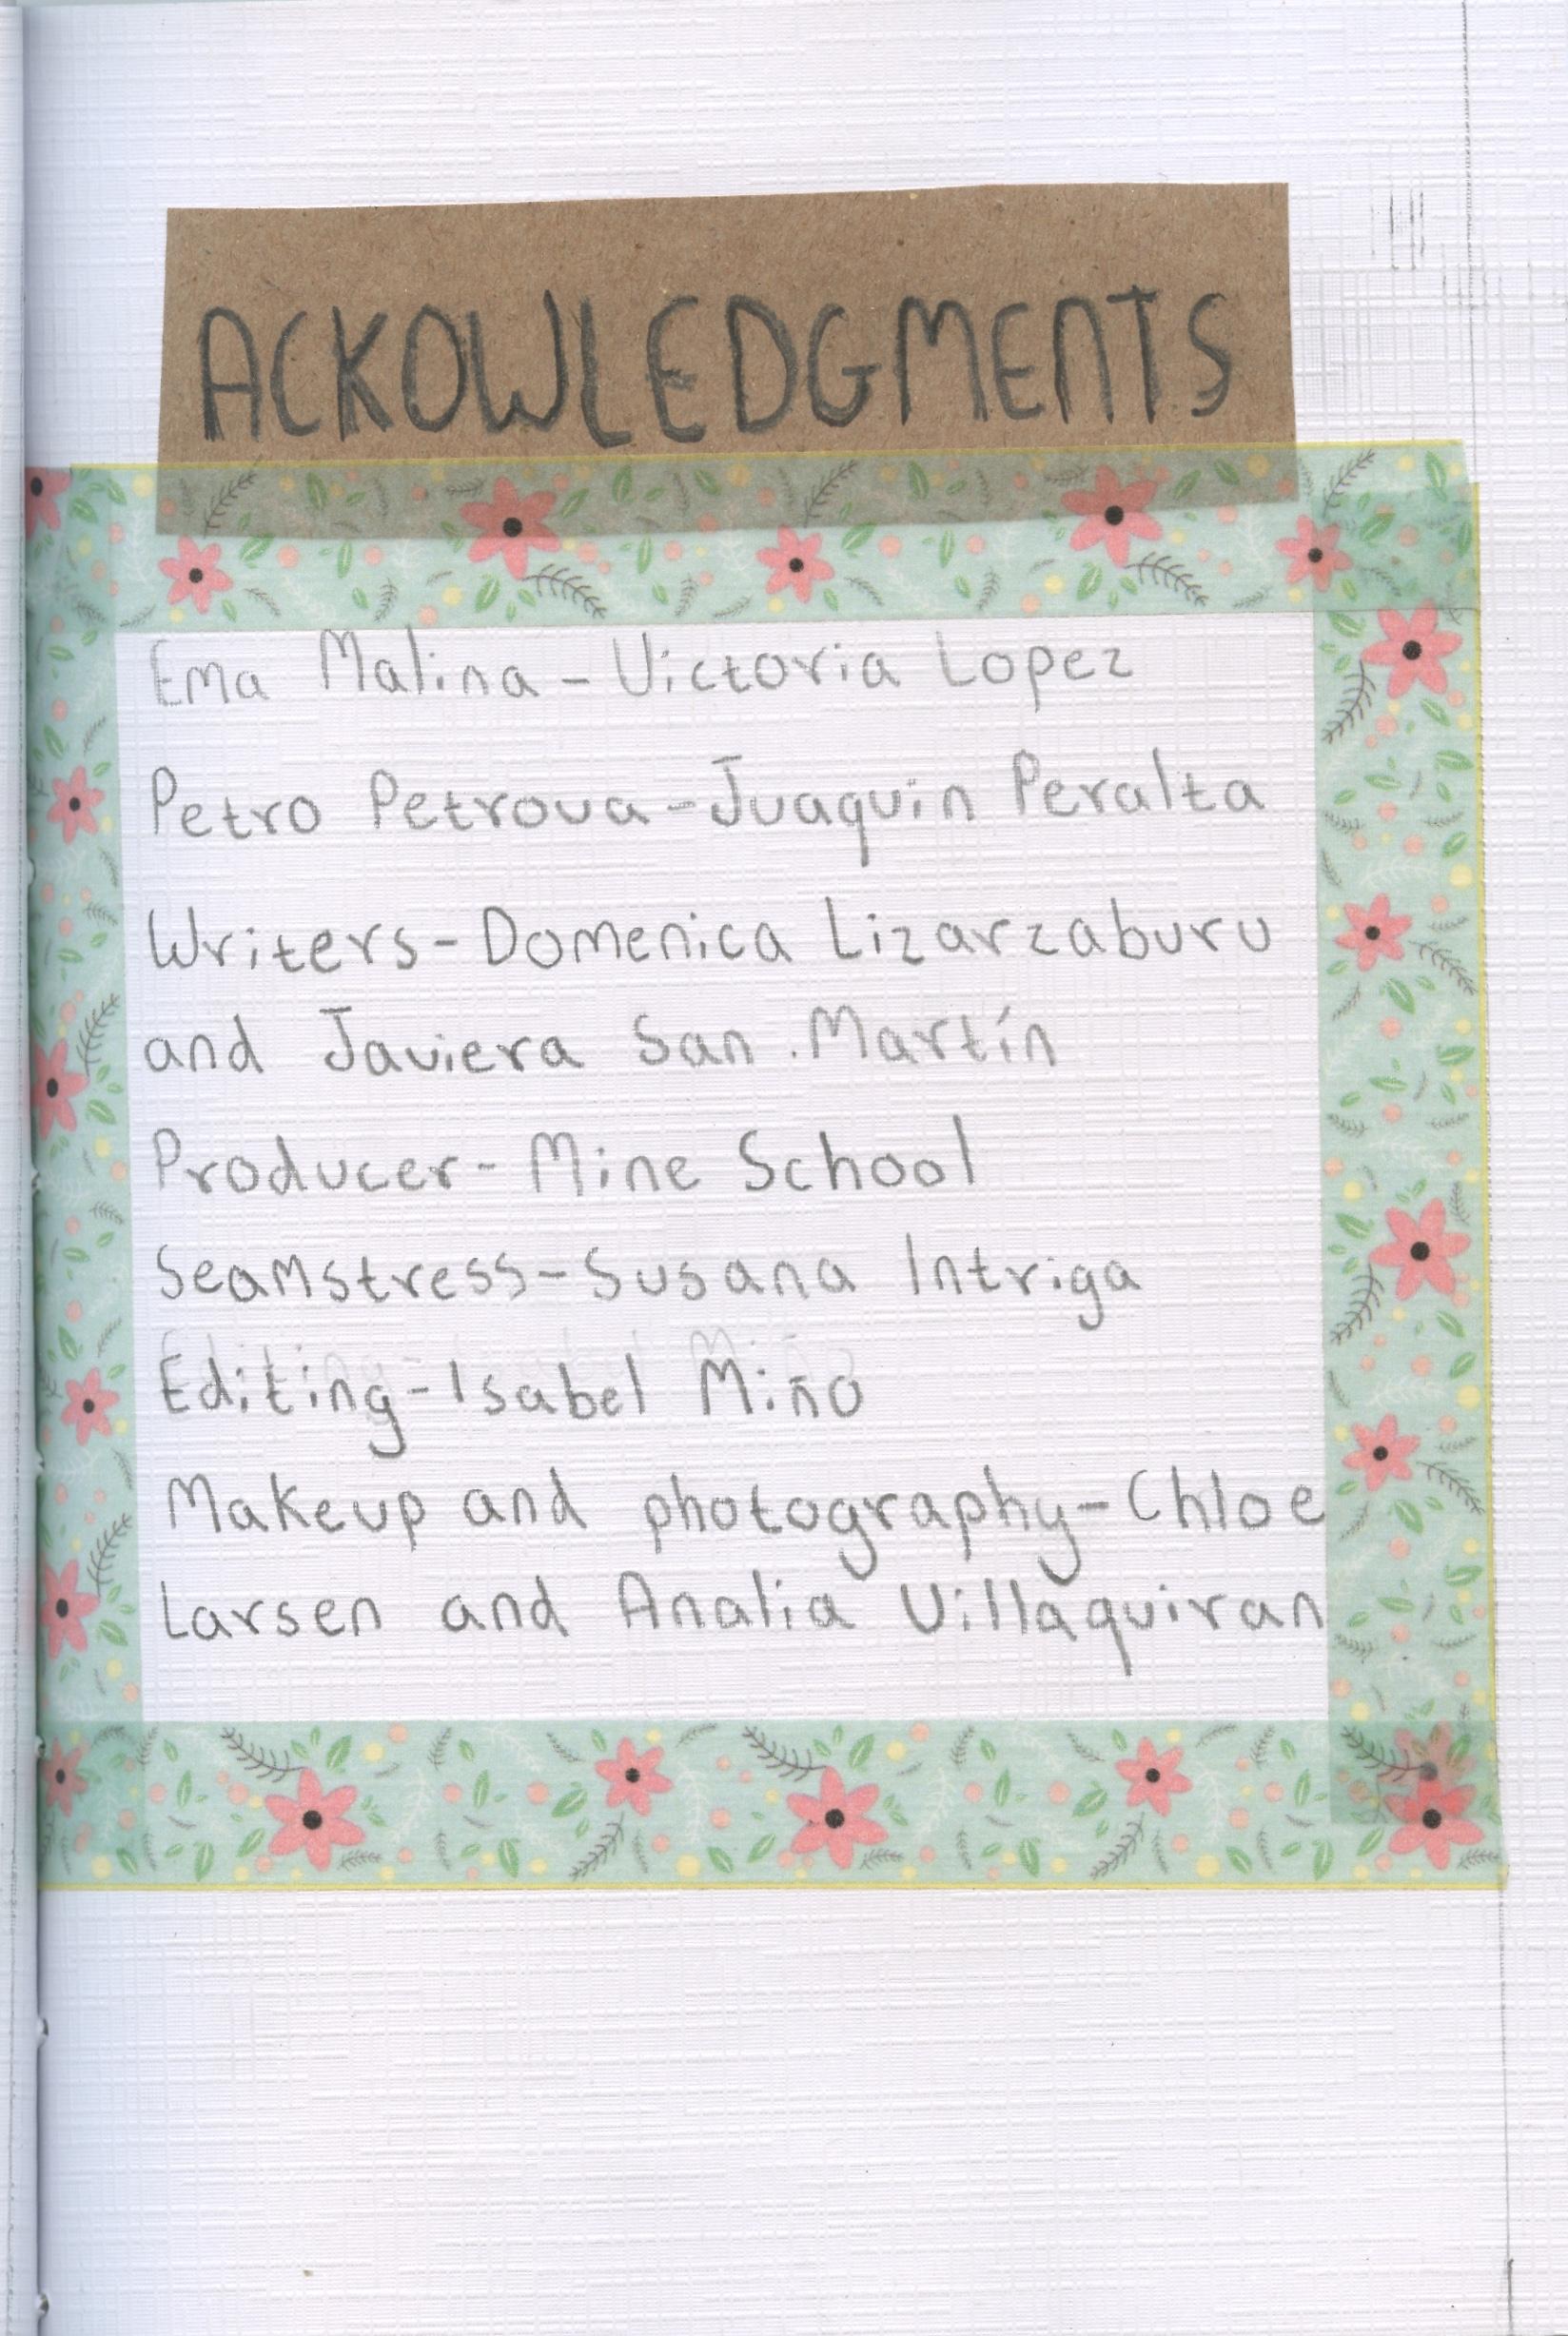 ACKOWLEDGMENTS
Ema Malina - Victoria Lopez
Petro Petrova - Juaquin Peralta
Writers - Domenica Lizarzaburu
and Javiera San Martín
Producer - Mine School
Seamstress - Susana Intriga
Editing - Isabel Miño
Makeup and photography - Chloe
Larsen and Analia Villaquiran